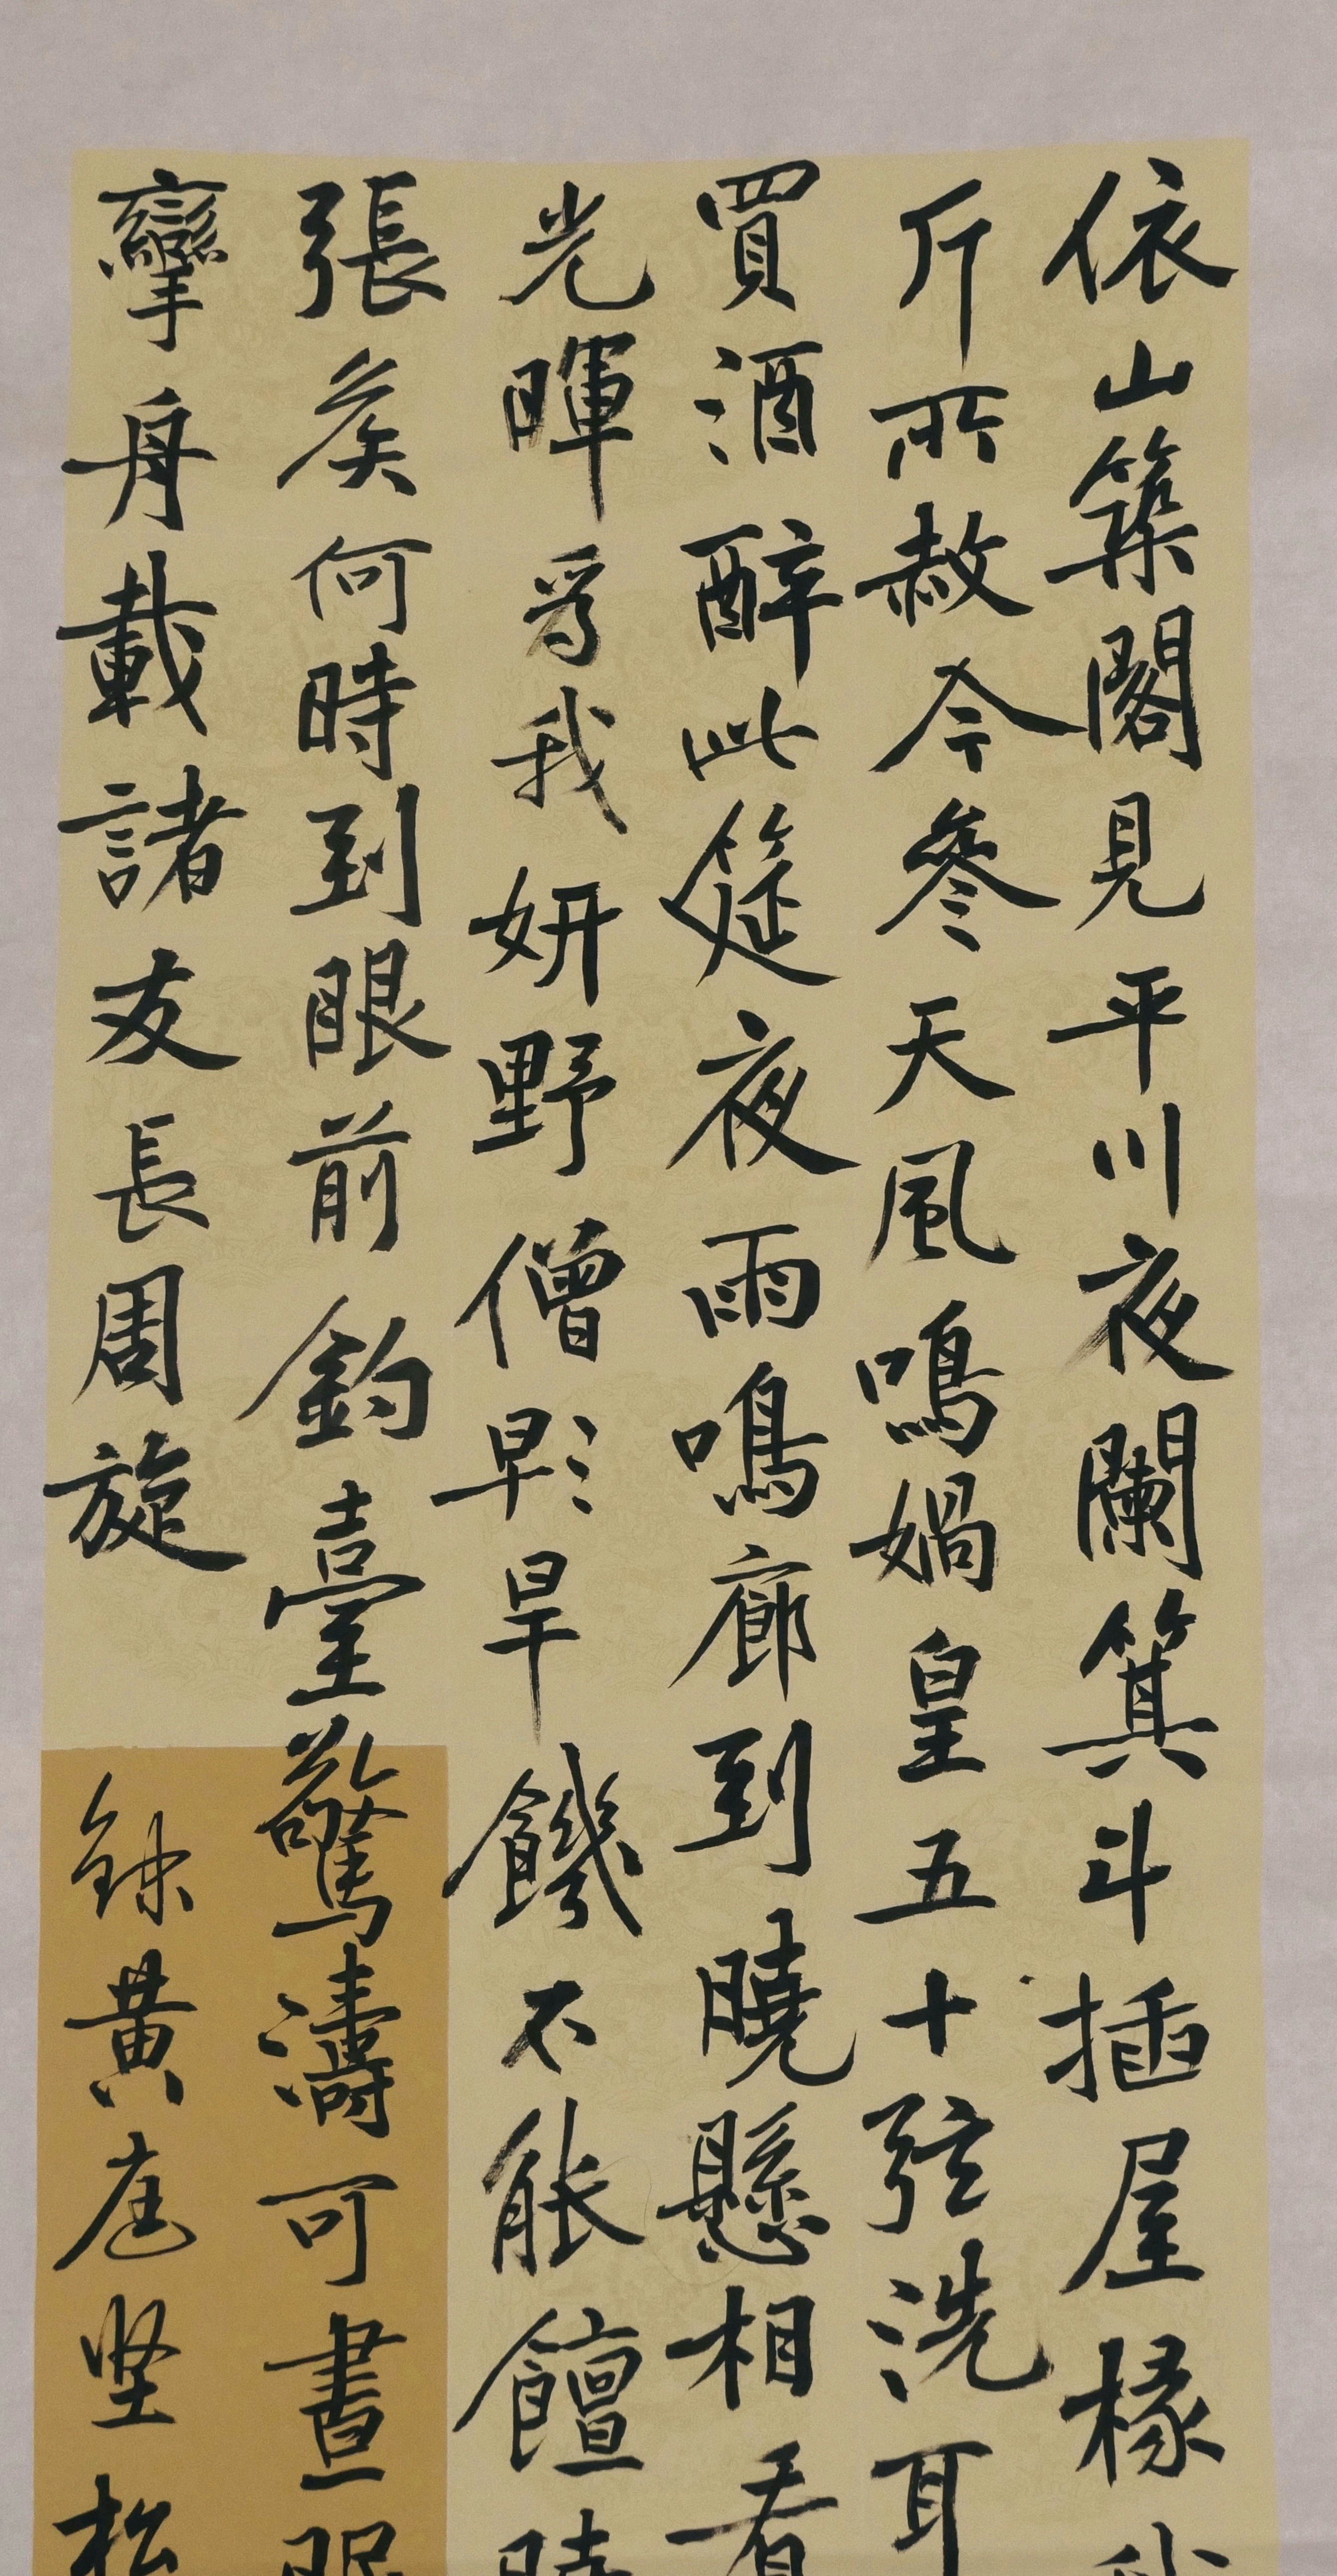 依山築閣見平川夜闌箕斗插屋椽我
斤所赦今參天風鳴媧皇五十弦洗耳
買酒醉此筵夜雨鳴廊到曉懸相看
光暉為我妍野僧早飢不能饘曉
張矣何時到眼前釣臺驚濤可晝眠
攣舟載諸友長周旋
錄黃庭坚松